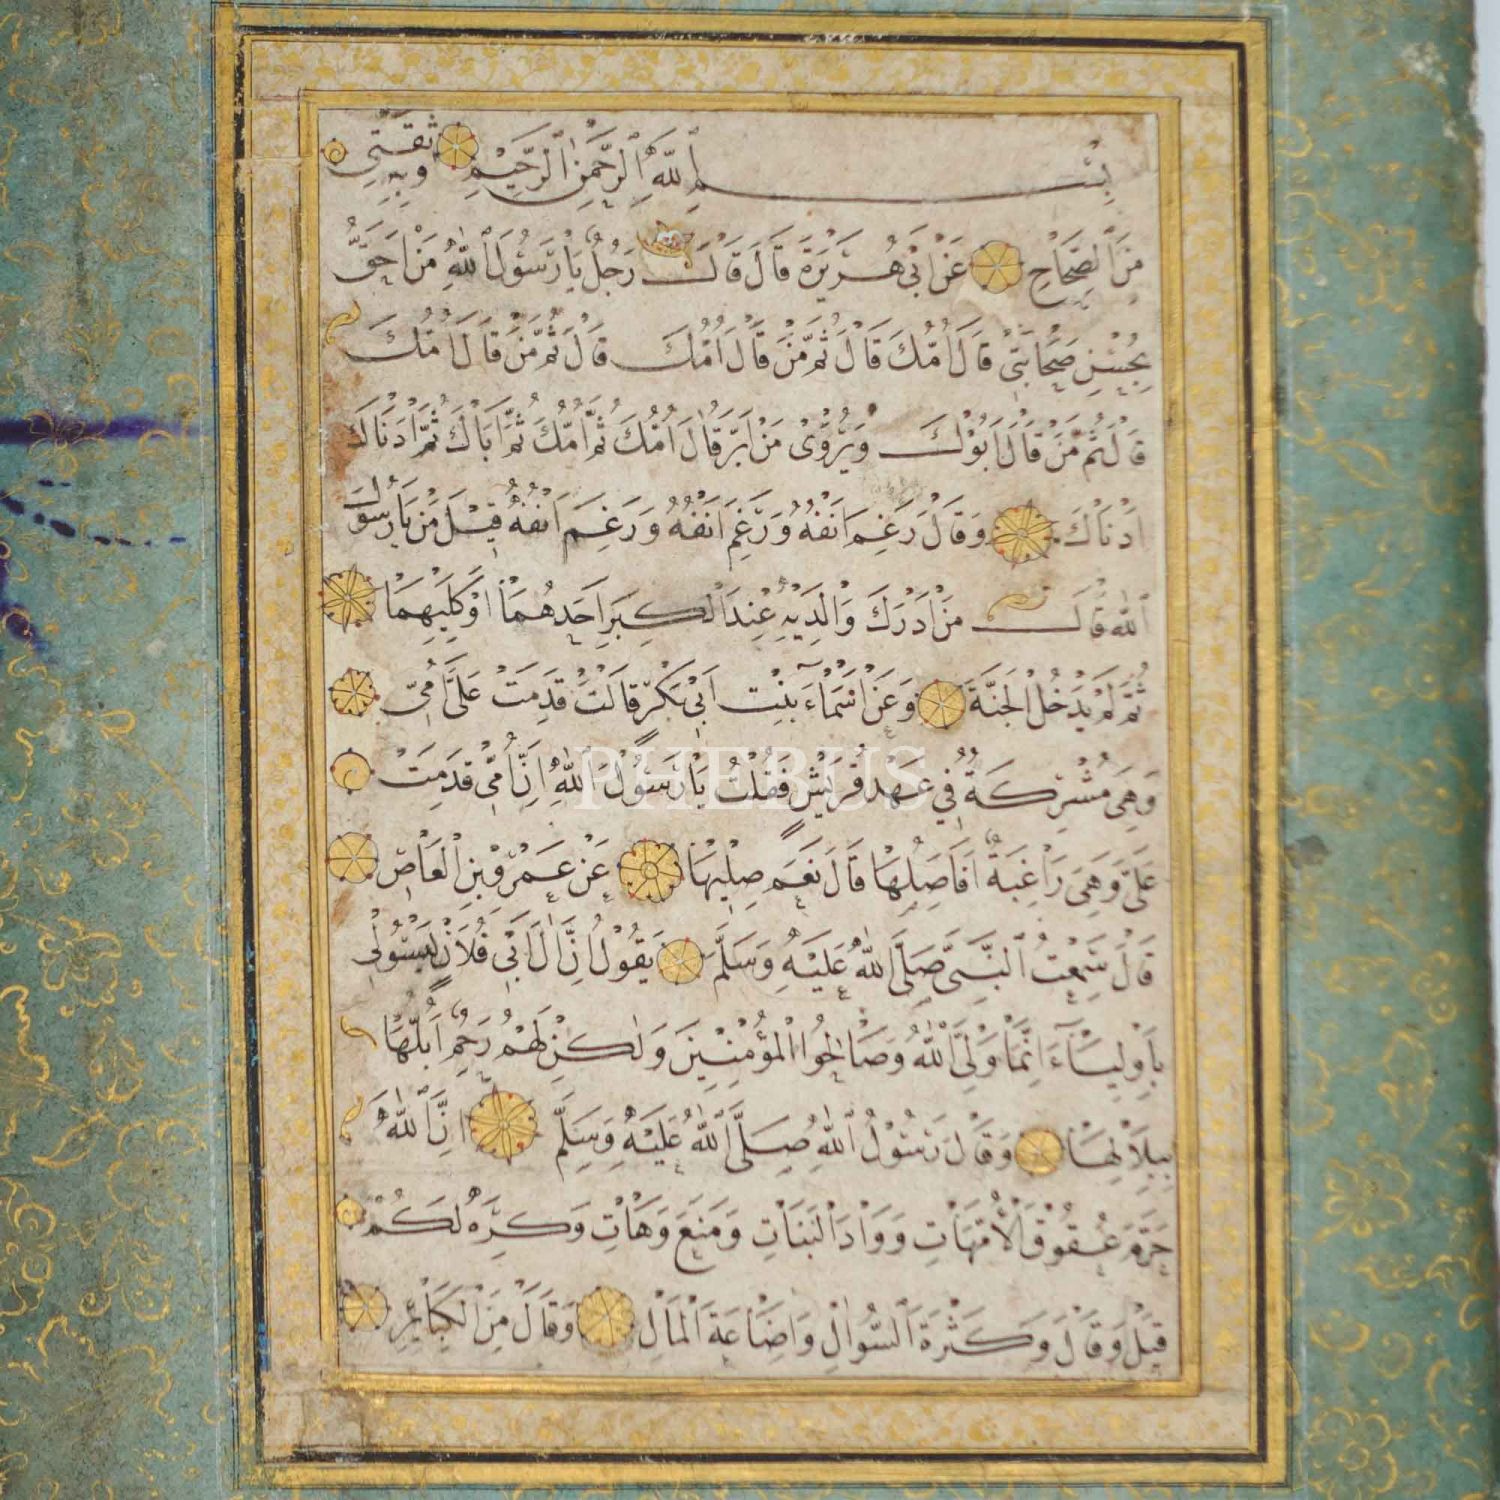 بِسْمِ اللّٰهِ الرَّحْمٰنِ الرَّحِيْمِ وَبِهِ ثِقَتِي
مِنَ الصِّحَاحِ عَنْ اَبِي هُرَيْرَةَ قَالَ قَالَ رَجُلٌ يَا رَسُوْلَ اللّٰهِ مَنْ اَحَقُّ
بِحُسْنِ صَحَابَتِي قَالَ اُمُّكَ قَالَ ثُمَّ مَنْ قَالَ اُمُّكَ قَالَ ثُمَّ مَنْ قَالَ اُمُّكَ
قَالَ ثُمَّ مَنْ قَالَ اَبُوْكَ وَيُرْوٰى مَنْ اَبَرُّ قَالَ اُمُّكَ ثُمَّ اُمُّكَ ثُمَّ اَبَاكَ ثُمَّ اَدْنَاكَ
اَدْنَاكَ وَقَالَ رَغِمَ اَنْفُهُ وَرَغِمَ اَنْفُهُ وَرَغِمَ اَنْفُهُ قِيْلَ مَنْ يَا رَسُوْلَ
اللّٰهِ قَالَ مَنْ اَدْرَكَ وَالِدَيْهِ عِنْدَ الْكِبَرِ اَحَدِهُمَا اَوْ كِلَيْهِمَا
ثُمَّ لَمْ يَدْخُلِ الْجَنَّةَ وَعَنْ اَسْمَاءَ بِنْتِ اَبِي بَكْرٍ قَالَتْ قَدِمَتْ عَلَيَّ اُمِّي
وَهِيَ مُشْرِكَةٌ فِي عَهْدِ قُرَيْشٍ فَقُلْتُ يَا رَسُوْلَ اللّٰهِ اِنَّ اُمِّي قَدِمَتْ
عَلَيَّ وَهِيَ رَاغِبَةٌ اَفَاَصِلُهَا قَالَ نَعَمْ صِلِيْهَا عَنْ عَمْرِو بْنِ الْعَاصِ
قَالَ سَمِعْتُ النَّبِيَّ صَلَّى اللّٰهُ عَلَيْهِ وَسَلَّمَ يَقُوْلُ اِنَّ اٰلَ اَبِي فُلَانٍ لَيْسُوْا لِي
بِاَوْلِيَاءَ اِنَّمَا وَلِيِّيَ اللّٰهُ وَصَالِحُوا الْمُؤْمِنِيْنَ وَلٰكِنْ لَهُمْ رَحِمٌ اَبُلُّهَا
بِبِلَالِهَا وَقَالَ رَسُوْلُ اللّٰهِ صَلَّى اللّٰهُ عَلَيْهِ وَسَلَّمَ اِنَّ اللّٰهَ
حَرَّمَ عُقُوْقَ الْاُمَّهَاتِ وَوَأْدَ الْبَنَاتِ وَمَنْعَ وَهَاتِ وَكَرِهَ لَكُمْ
قِيْلَ وَقَالَ وَكَثْرَةَ السُّوَالِ وَاِضَاعَةَ الْمَالِ وَقَالَ مِنَ الْكَبَائِرِ
PHEBUS